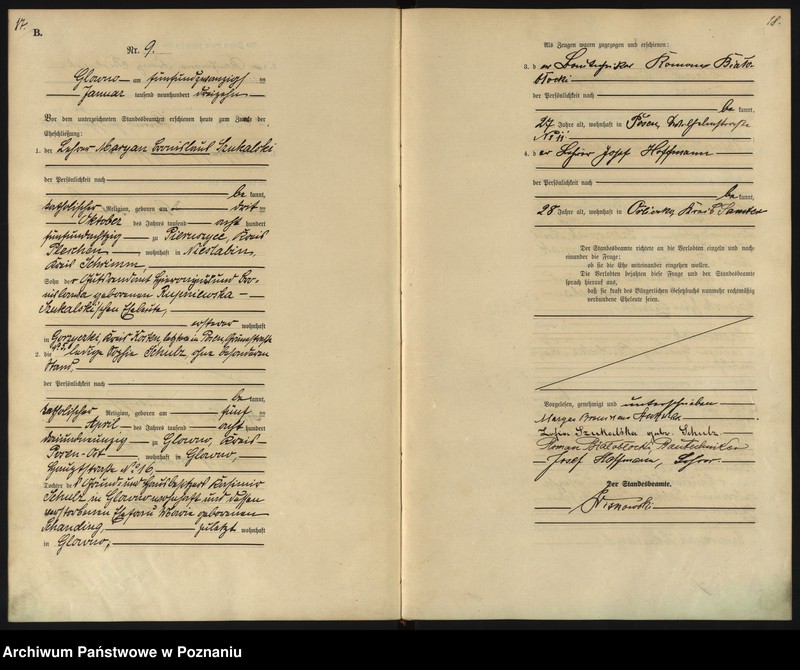 17.
B.
Nr. 9.
Glowno am fünfundzwanzigsten
Januar tausend neunhundert dreizehn
Vor dem unterzeichneten Standesbeamten erschienen heute zum Zwecke der
Eheschließung:
1. der Lehrer Maryan Bronislaus Szukalski
der Persönlichkeit nach
be kannt,
katholischer Religion, geboren am drit
Oktober des Jahres tausend acht hundert
fünfundachtzig zu Pieruszyce, Kreis
Pleschen wohnhaft in Nieslabin,
Kreis Schrimm,
Sohn de Hieronymus und Bro-
nislawa geborenen Rupniewska
Szukalskischen Eheleute,
ersterer wohnhaft
in Gorzyczki, Kreis Kosten, letztere in Posen
2. die ledige Sophie Schulz, ohne besonderen
Stand,
der Persönlichkeit nach
be kannt,
katholischer Religion, geboren am fünf
April des Jahres tausend acht hundert
neunundneunzig zu Glowno, Kreis
Posen-Ost wohnhaft in Glowno,
Hauptstraße No 16,
Tochter des Grund- und Hausbesitzers Kasimir
Schulz, in Glowno wohnhaft und dessen
verstorbenen Ehefrau Maria geborenen
zuletzt wohnhaft
in Glowno,
18.
Als Zeugen waren zugezogen und erschienen:
3. der Bautechniker Roman Biało-
błocki
der Persönlichkeit nach
be kannt,
27 Jahre alt, wohnhaft in Posen, Wilhelmstraße
No 11
4. der Lehrer Josef Hoffmann
der Persönlichkeit nach
be kannt,
28 Jahre alt, wohnhaft in Kreis Samter
Der Standesbeamte richtete an die Verlobten einzeln und nach-
einander die Frage:
ob sie die Ehe miteinander eingehen wollen.
Die Verlobten bejahten diese Frage und der Standesbeamte
sprach hierauf aus,
daß sie kraft des Bürgerlichen Gesetzbuchs nunmehr rechtmäßig
verbundene Eheleute seien.
Vorgelesen, genehmigt und unterschrieben
Zofia Szukalska geb. Schulz
Roman Białobłocki, Bautechniker
Josef Hoffmann, Lehrer
Der Standesbeamte.
Archiwum Państwowe w Poznaniu